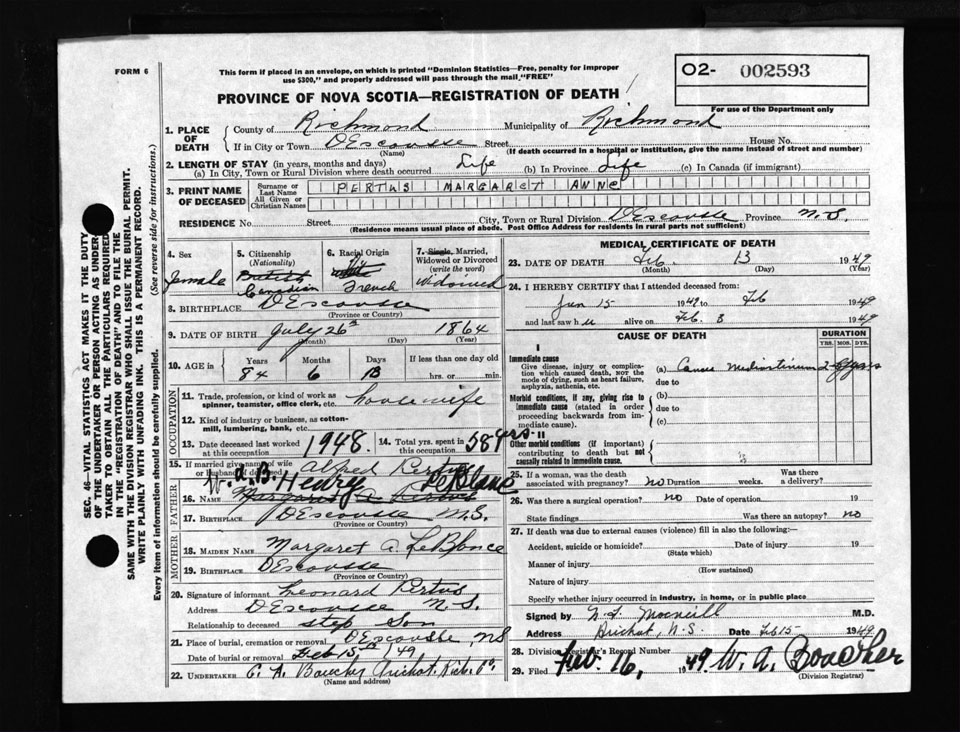 FORM 6
This form if placed in an envelope, on which is printed "Dominion Statistics—Free, penalty for improper
use $300," and properly addressed will pass through the mail "FREE"
O2- 002593
For use of the Department only
PROVINCE OF NOVA SCOTIA—REGISTRATION OF DEATH
1. PLACE OF DEATH County of Richmond Municipality of Richmond
If in City or Town DEscousse Street House No.
(Name) (If death occurred in a hospital or institution, give the name instead of street and number)
2. LENGTH OF STAY (in years, months and days)
(a) In City, Town or Rural Division where death occurred Life (b) In Province Life (c) In Canada (if immigrant)
3. PRINT NAME OF DECEASED Surname or Last Name PERTUS MARGARET ANNE
All Given or Christian Names
RESIDENCE No. Street City, Town or Rural Division DEscousse Province N.S.
(Residence means usual place of abode. Post Office Address for residents in rural parts not sufficient)
SEC. 46—VITAL STATISTICS ACT MAKES IT THE DUTY
OF THE UNDERTAKER OR PERSON ACTING AS UNDER
TAKER TO OBTAIN ALL THE PARTICULARS REQUIRED
IN THE "REGISTRATION OF DEATH" AND TO FILE THE
SAME WITH THE DIVISION REGISTRAR WHO SHALL ISSUE THE BURIAL PERMIT.
WRITE PLAINLY WITH UNFADING INK. THIS IS A PERMANENT RECORD.
Every item of information should be carefully supplied. (See reverse side for instructions.)
4. Sex Female
5. Citizenship (Nationality) British Canadian
6. Racial Origin French
7. Single, Married, Widowed or Divorced (write the word) Widowed
8. BIRTHPLACE DEscousse
(Province or Country)
9. DATE OF BIRTH July 26th 1864
(Month) (Day) (Year)
10. AGE in Years Months Days If less than one day old
84 6 18 hrs. or min.
OCCUPATION
11. Trade, profession, or kind of work as spinner, teamster, office clerk, etc. housewife
12. Kind of industry or business, as cotton-mill, lumbering, bank, etc.
13. Date deceased last worked at this occupation 1948. 14. Total yrs. spent in this occupation 58 yrs
15. If married give name of wife or husband of deceased Alfred Pertus
W.A.B. Henry LeBlanc
FATHER
16. NAME Margaret A. Pertus
17. BIRTHPLACE DEscousse N.S.
(Province or Country)
MOTHER
18. MAIDEN NAME Margaret A. LeBlance
19. BIRTHPLACE DEscousse
(Province or Country)
20. Signature of informant Leonard Pertus
Address DEscousse N.S.
Relationship to deceased step Son
21. Place of burial, cremation or removal DEscousse, NS
Date of burial or removal Feb 15th 1949
22. UNDERTAKER C. A. Boucher Arichat. Rich. Co.
(Name and address)
MEDICAL CERTIFICATE OF DEATH
23. DATE OF DEATH Feb. 13 1949
(Month) (Day) (Year)
24. I HEREBY CERTIFY that I attended deceased from:
Jan 15 1949 to Feb 1949
and last saw h alive on Feb. 8 1949
CAUSE OF DEATH DURATION
YRS. MOS. DYS.
I
Immediate cause
Give disease, injury or complication which caused death, not the mode of dying, such as heart failure, asphyxia, asthenia, etc.
(a)
due to
Morbid conditions, if any, giving rise to immediate cause (stated in order proceeding backwards from immediate cause).
(b)
due to
(c)
II
Other morbid conditions (if important) contributing to death but not causally related to immediate cause.
25. If a woman, was the death associated with pregnancy? no Duration weeks. Was there a delivery?
26. Was there a surgical operation? no Date of operation 19
State findings Was there an autopsy? no
27. If death was due to external causes (violence) fill in also the following:—
Accident, suicide or homicide? Date of injury 19
(State which)
Manner of injury
(How sustained)
Nature of injury
Specify whether injury occurred in industry, in home, or in public place
Signed by Macneill M.D.
Address Arichat, N.S. Date Feb 15 1949
28. Division Registrar's Record Number
29. Filed Feb. 16, 1949. W. A. Boucher
(Division Registrar)